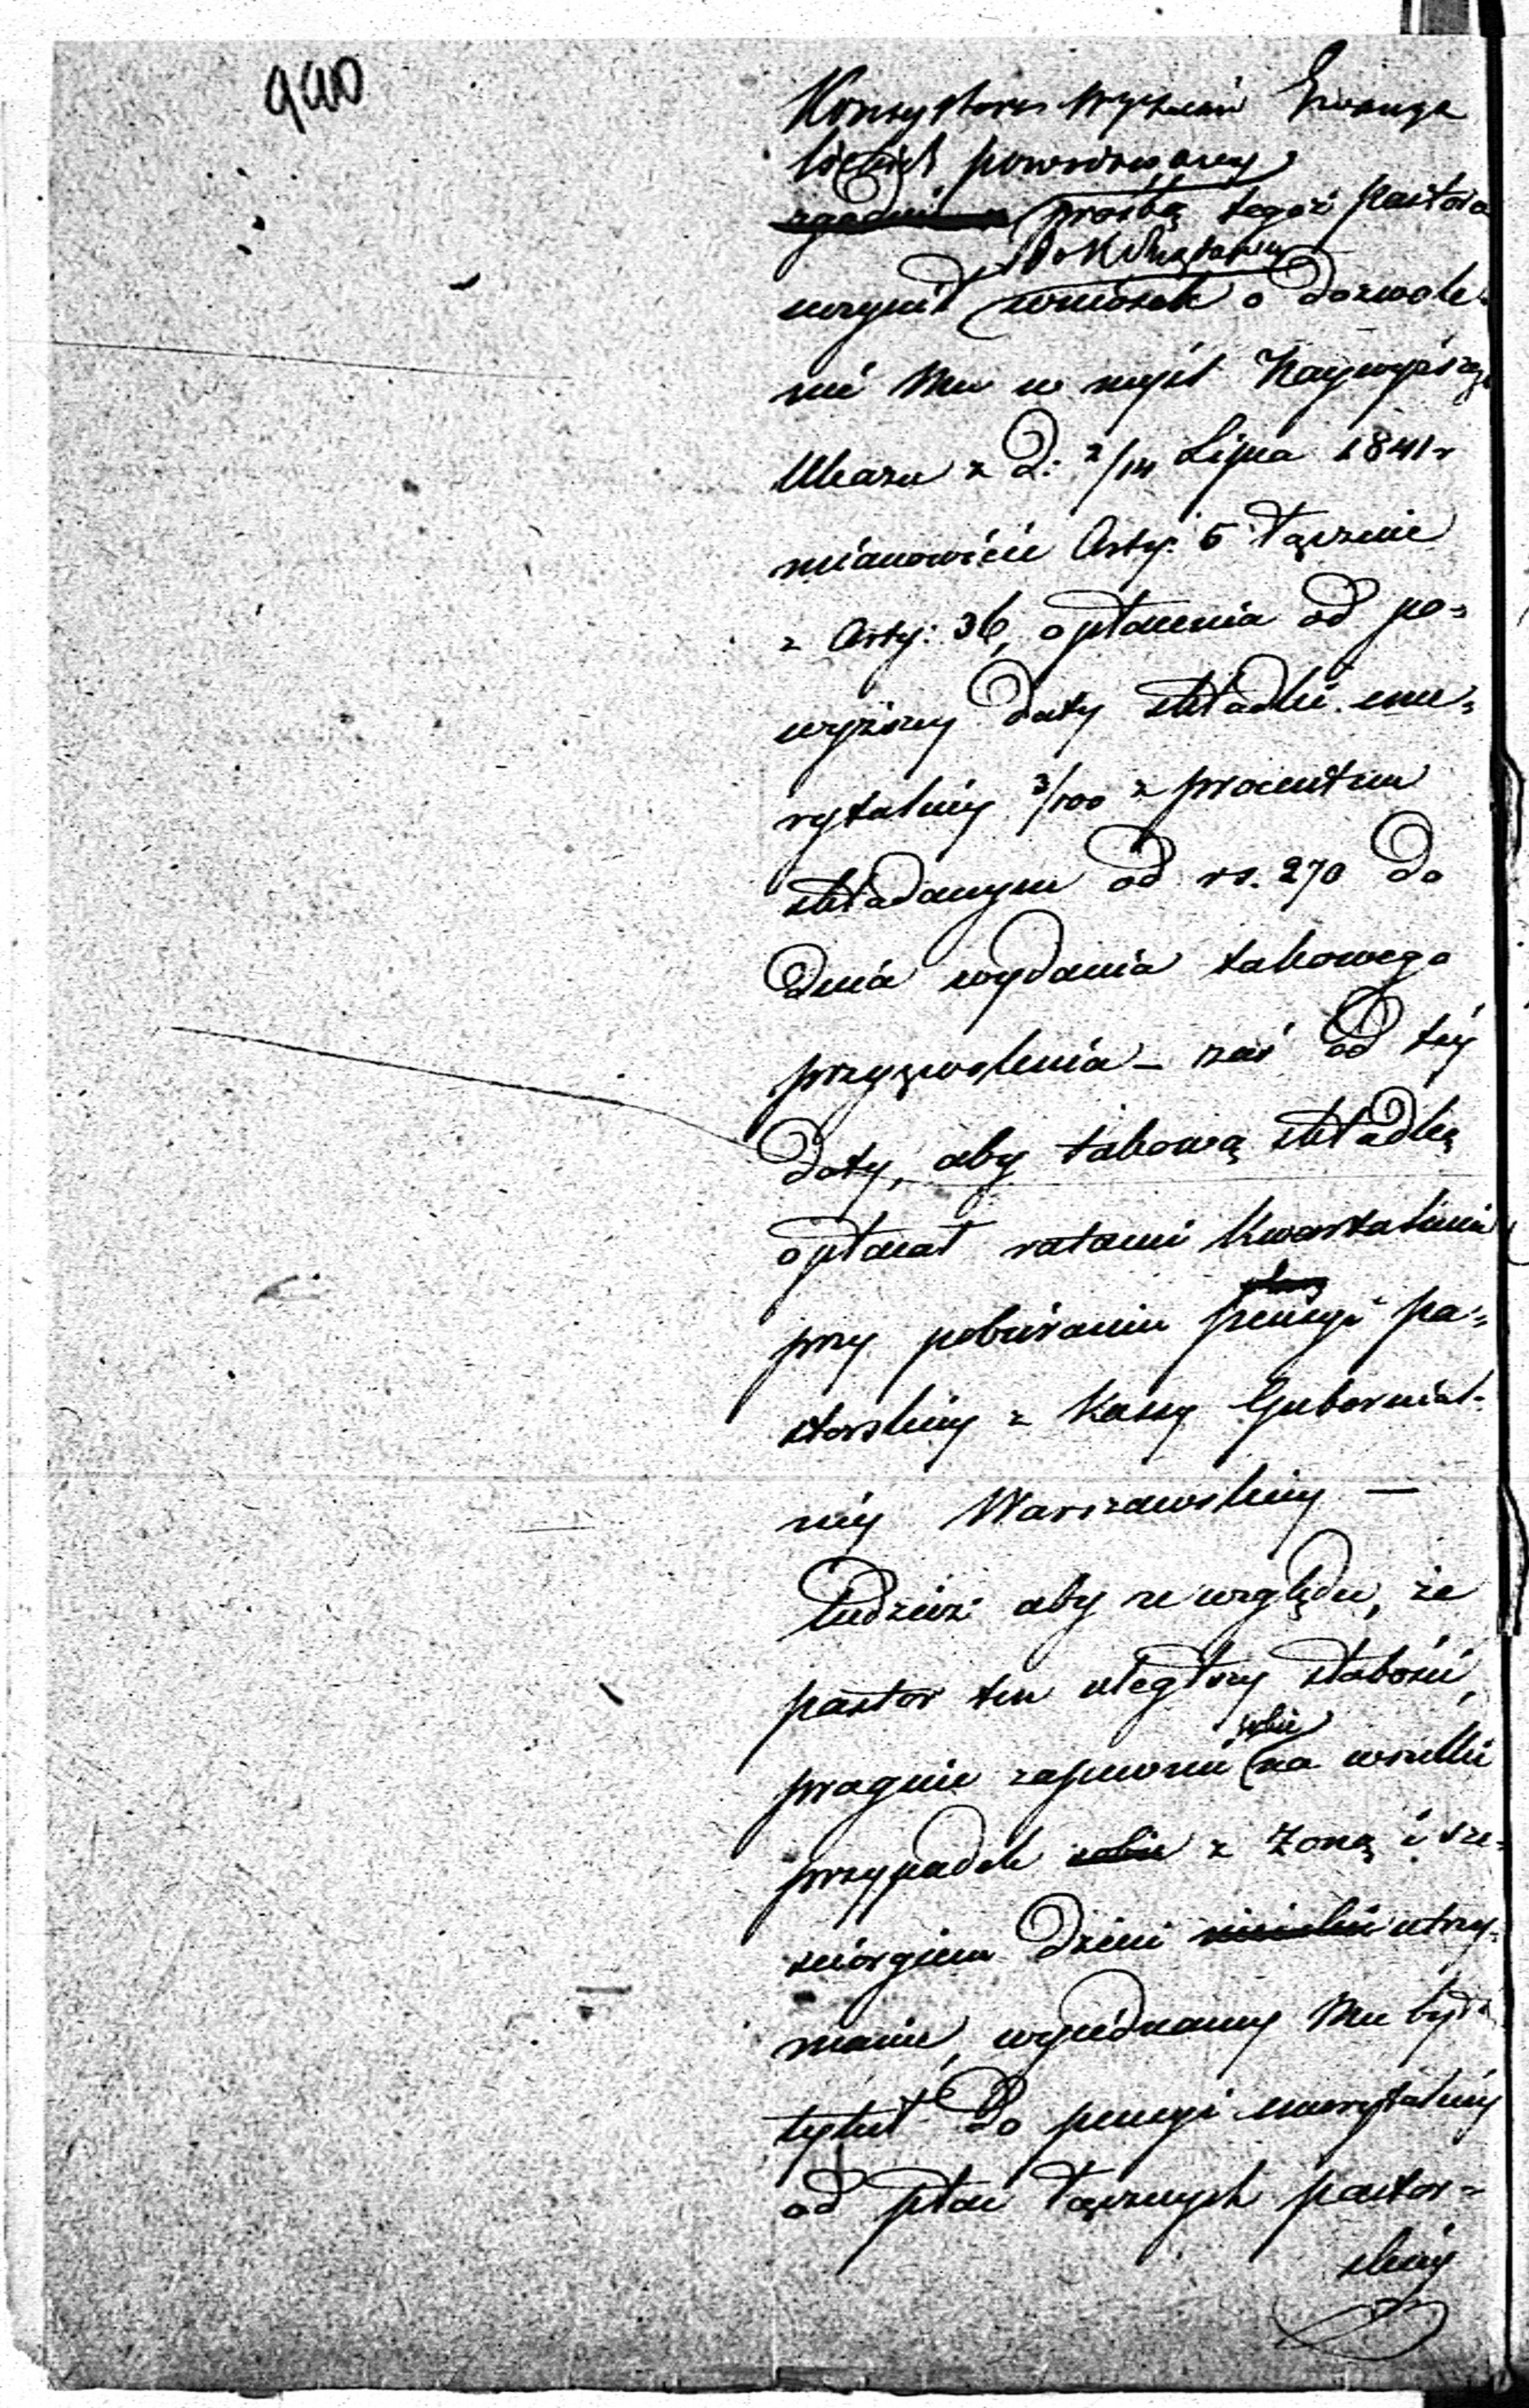 940
Konsystorz Wyznań Ewange
lickich powodowany
zgodnie prośbą tegoż pastora
do K. Rządowey
uczynił wniosek o dozwole
nie Mu w myśl Naywyższego
Ukazu z d: 2/14 Lipca 1841 r
mianowicie Arty: 5 łącznie
z Arty: 36, opłacenia od po=
wyższey daty składki eme=
rytalney 3/100 z procentem
składanym od rs. 270 do
dnia wydania takowego
przyzwolenia – zaś od tey
daty, aby takową składkę
opłacał ratami kwartalnie
przy pobieraniu pensyi pa=
storskiey z Kassy Gubernial-
ney Warszawskiey —
Tudzież aby ze względu, że
pastor ten uległszy słabości,
sobie
pragnie zapewnić na wszelki
przypadek sobie z żoną i sze=
ściorgiem dzieci utrzy=
manie, wyjednany Mu był
tytuł do pensyi emerytalney
od płac łącznych pastor=
skiey